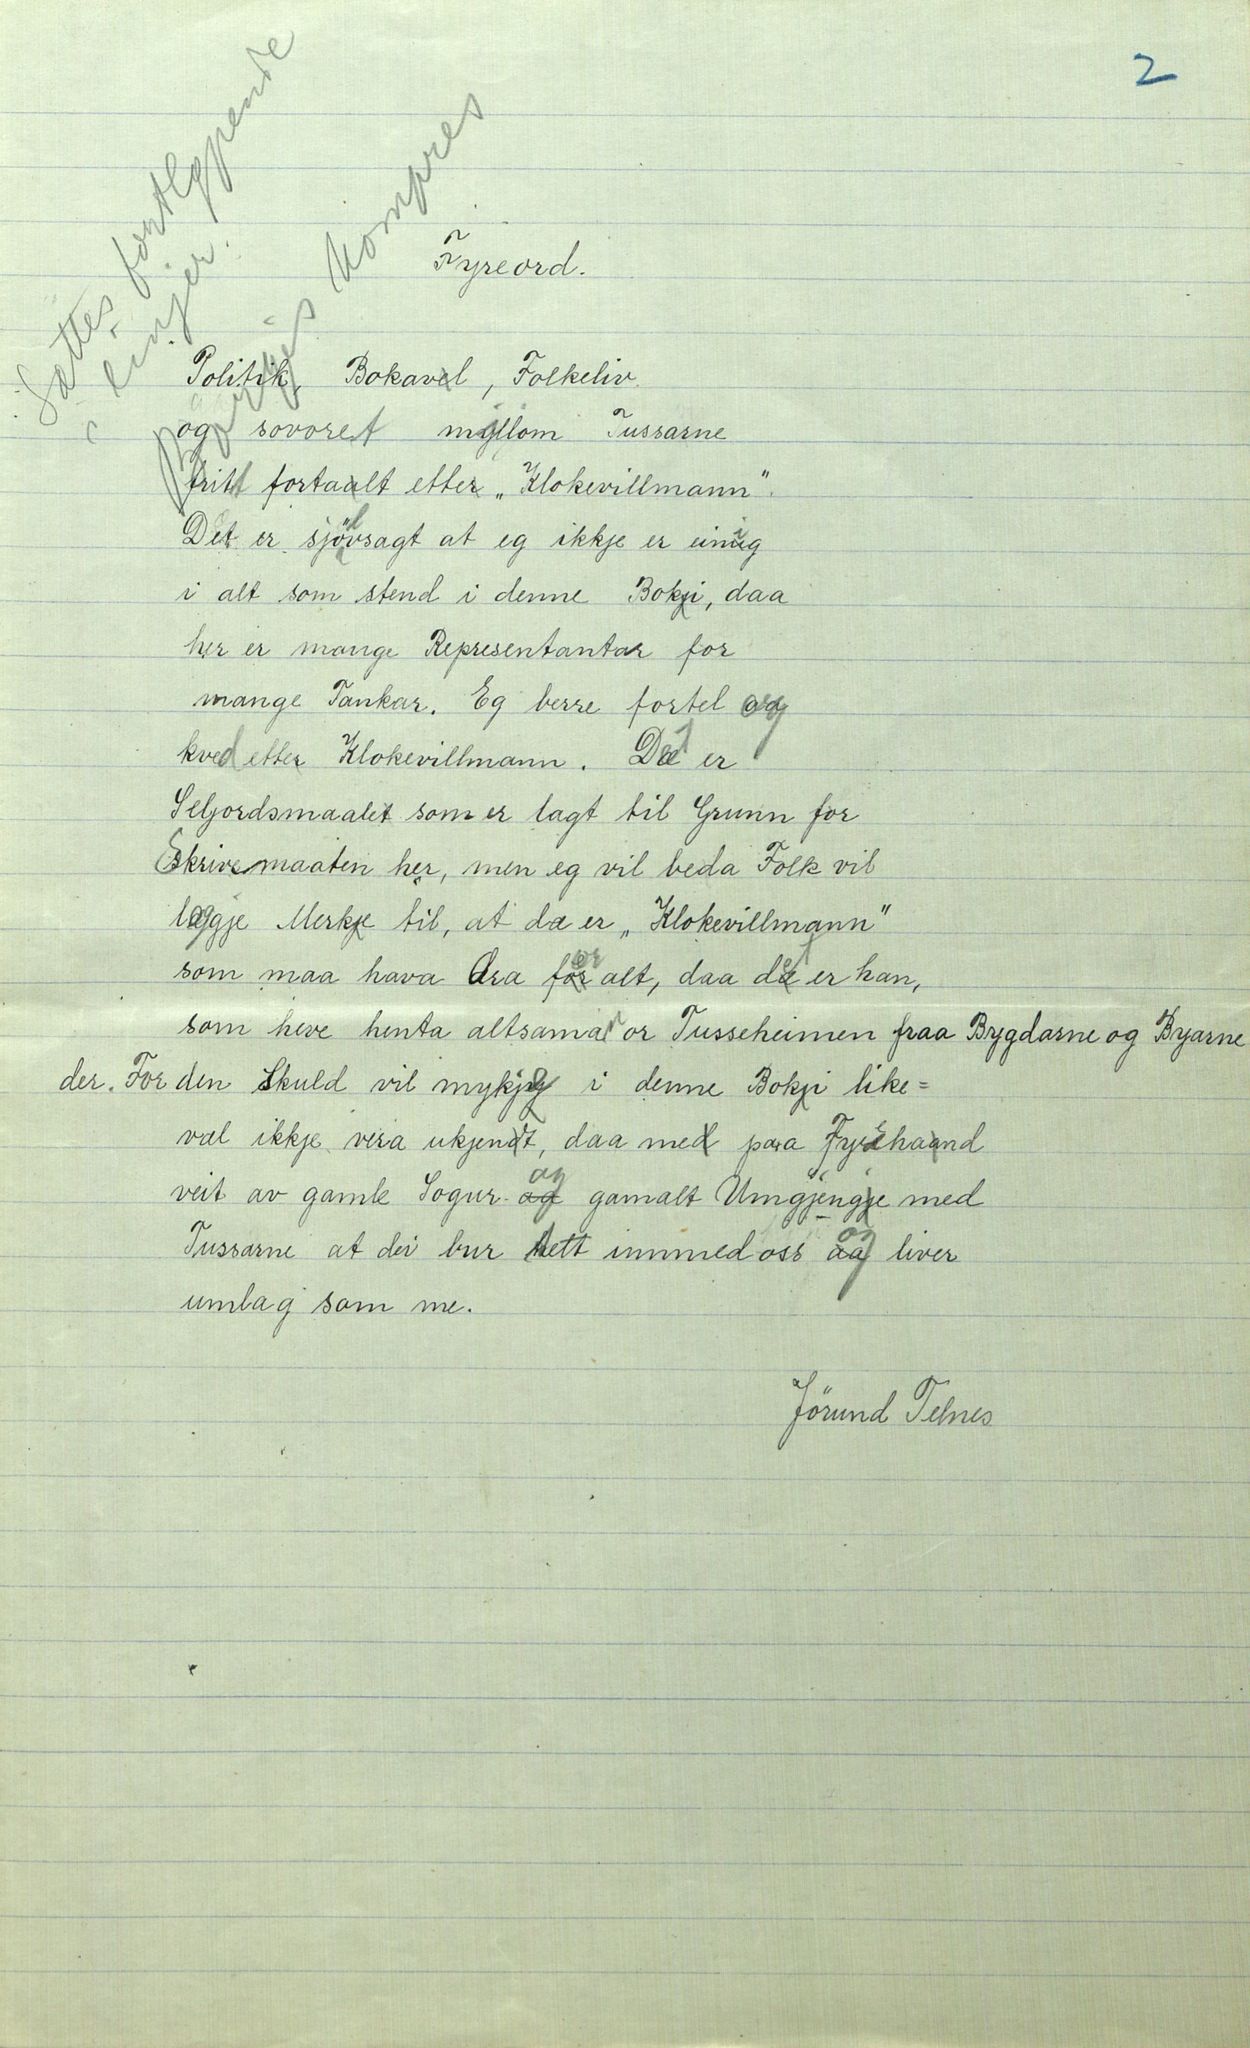 2
Sættes fortløpende
i linjer.
Kompres
Fyreord.
Politik, Bokavel, Folkeliv
og sovoret myllom Tussarne
fritt fortaalt etter „Klokevillmann".
Det er sjölvsagt at eg ikkje er einig
i alt som stend i denne Bokji, daa
her er mange Representantar for
mange Tankar. Eg berre fortel og
kved etter Klokevillmann. Det er
Seljordsmaalet som er lagt til Grunn for
Skrivemaaten her, men eg vil beda Folk vil
leggje Merkje til, at dæ er „Klokevillmann"
som maa hava Æra for alt, daa det er han,
som heve henta altsaman or Tusseheimen fraa Bygdarne og Byarne
der. For den Skuld vil mykje i denne Bokji like=
væl ikkje vera ukjendt, daa med para Fyrehaand
veit av gamle Sogur og gamalt Umgjengje med
Tussarne at dei bur tett innmed oss og liver
umlag som me.
Jörund Telnes